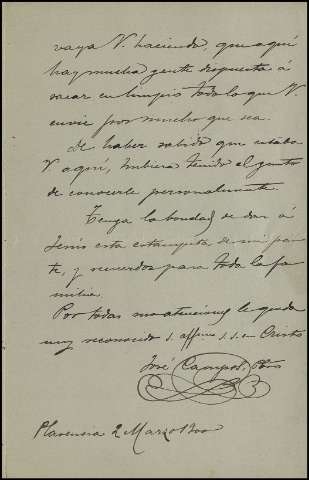 vaya V. haciendo, que aquí
hay mucha gente dispuesta á
sacar en limpio todo lo que V.
envie por mucho que sea.
De haber sabido que estaba
V. aquí, hubiera tenido el gusto
de conocerle personalmente.
Tenga la bondad de dar á
Jesús esta estampita de mi par-
te, y recuerdos para toda la fa-
milia.
Por todas sus atenciones le queda
muy reconocido s. affmo s. s. en Cristo
José Campos Pbro
Plasencia 2 Marzo